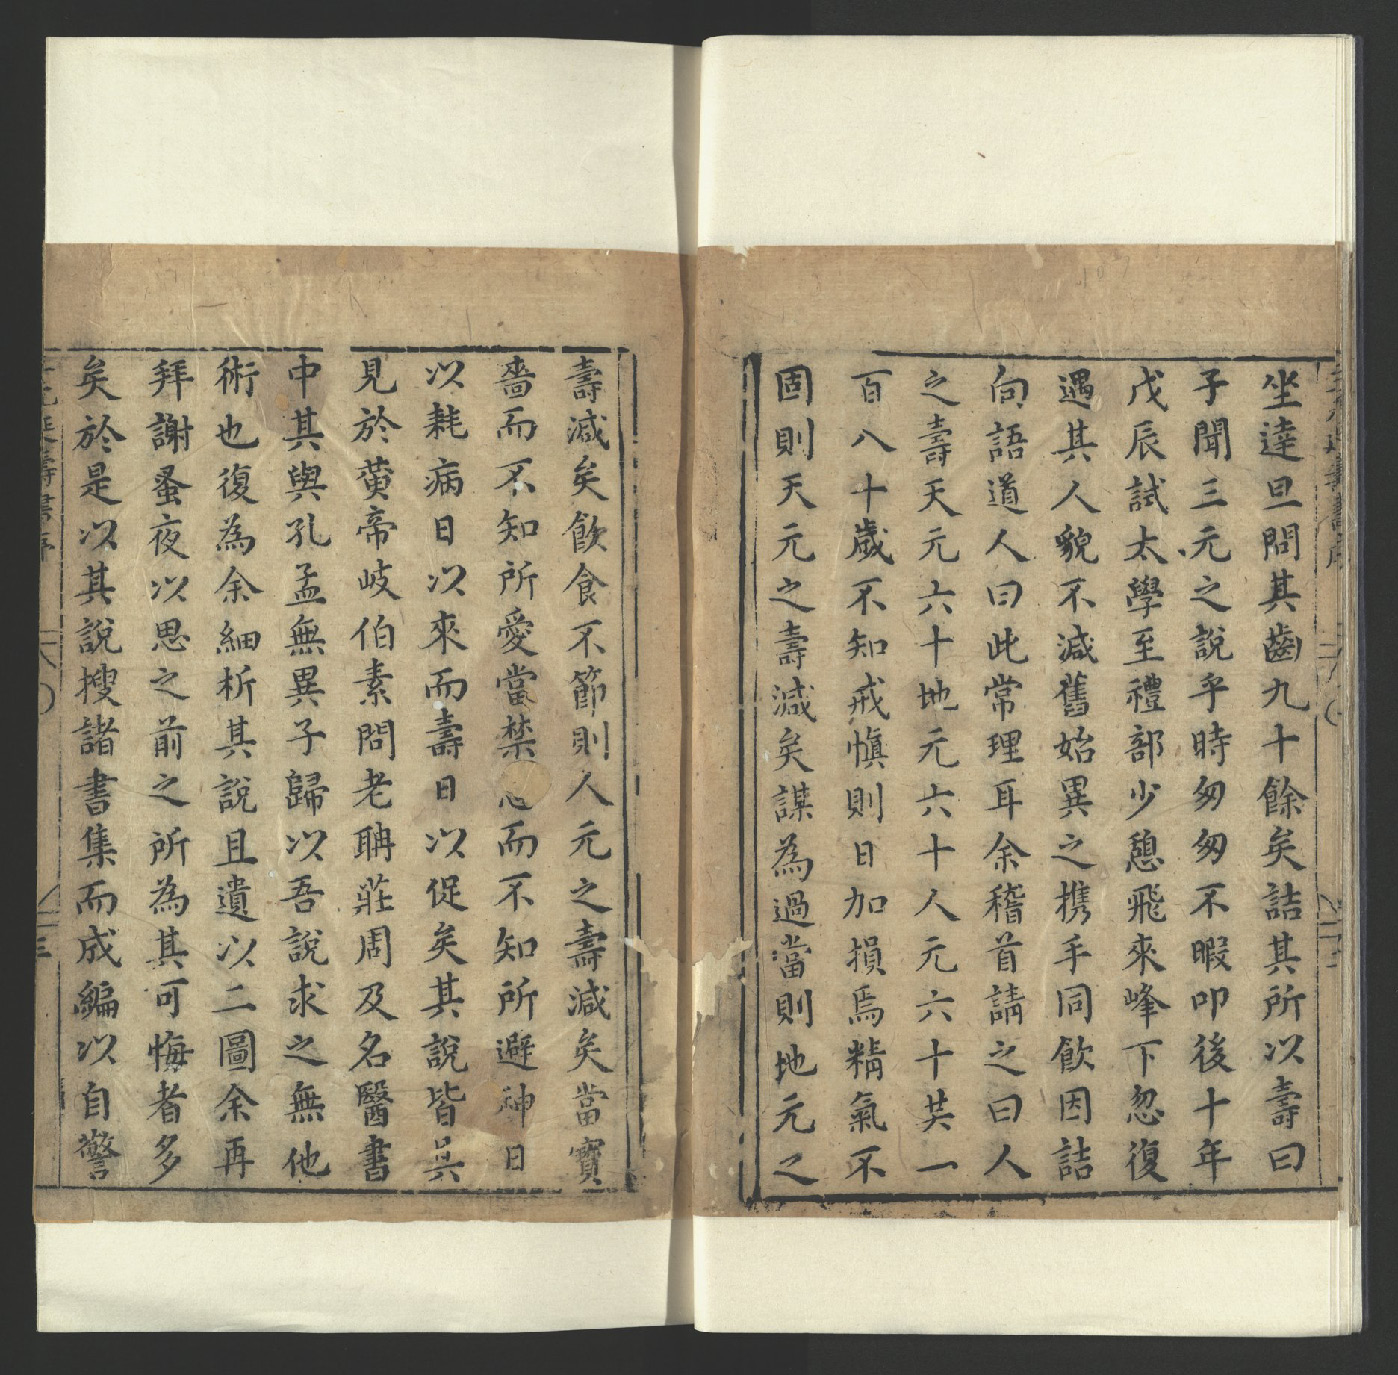 坐逹旦問其齒九十餘矣詰其所以壽曰
子聞三元之說乎時匆匆不暇叩後十年
戊辰試太學至禮部少憩飛來峰下忽復
遇其人貌不減舊始異之携手同飲因詰
向語道人曰此常理耳余稽首請之曰人
之壽天元六十地元六十人元六十共一
百八十歲不知戒慎則日加損焉精氣不
固則天元之壽減矣謀為過當則地元之
壽減矣飲食不節則人元之壽減矣當寶
嗇而不知所愛當禁忌而不知所避神日
以耗病日以來而壽日以促矣其說皆具
見於黄帝岐伯素問老聃莊周及名醫書
中其與孔孟無異子歸以吾說求之無他
術也復為余細析其說且遺以二圖余再
拜謝蚤夜以思之前之所為其可悔者多
矣於是以其說搜諸書集而成編以自警